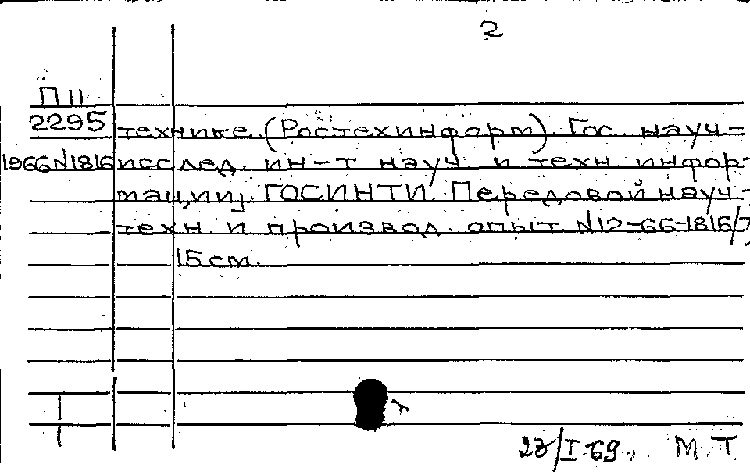 2
П 11
2295
технике. (Ростехинформ). Гос. науч-
1966 N1816
исслед. ин-т науч. и техн. инфор-
мации, ГОСИНТИ. Передовой науч.-
техн. и производ. опыт N12-66-1816/7
15 см.
23/I-69. М. Т